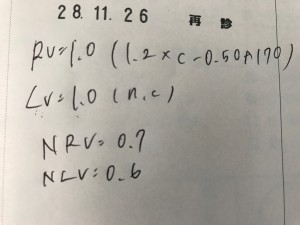 28.11.26 再診
RV=1.0 (1.2×C-0.50A170)
LV=1.0 (n.c)
NRV=0.7
NLV=0.6